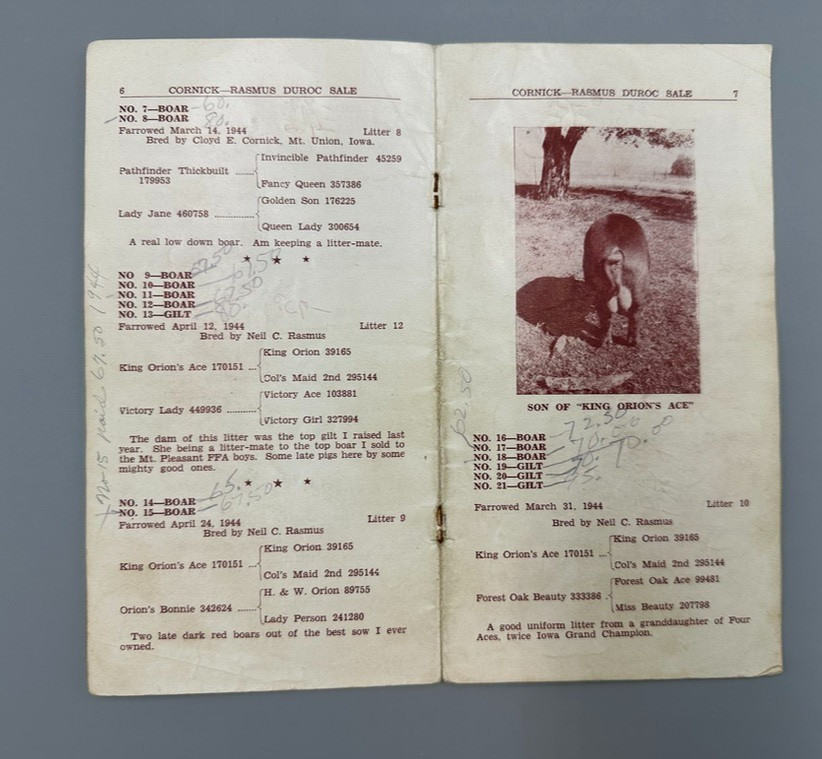 6 CORNICK—RASMUS DUROC SALE
NO. 7—BOAR 60.
NO. 8—BOAR 80.
Farrowed March 14, 1944 Litter 8
Bred by Cloyd E. Cornick, Mt. Union, Iowa.
Invincible Pathfinder 45259
Pathfinder Thickbuilt
179953
Fancy Queen 357386
Golden Son 176225
Lady Jane 460758
Queen Lady 300654
A real low down boar. Am keeping a litter-mate.
★ ★ ★
NO 9—BOAR
NO. 10—BOAR 67.50
NO. 11—BOAR
NO. 12—BOAR
NO. 13—GILT
Farrowed April 12, 1944 Litter 12
Bred by Neil C. Rasmus
King Orion 39165
King Orion's Ace 170151
Col's Maid 2nd 295144
Victory Ace 103881
Victory Lady 449936
Victory Girl 327994
The dam of this litter was the top gilt I raised last
year. She being a litter-mate to the top boar I sold to
the Mt. Pleasant FFA boys. Some late pigs here by some
mighty good ones.
★ ★ ★
NO. 14—BOAR 65.
NO. 15—BOAR 67.50
Farrowed April 24, 1944 Litter 9
Bred by Neil C. Rasmus
King Orion 39165
King Orion's Ace 170151
Col's Maid 2nd 295144
H. & W. Orion 89755
Orion's Bonnie 342624
Lady Person 241280
Two late dark red boars out of the best sow I ever
owned.
No 15 paid 67.50 1944
CORNICK—RASMUS DUROC SALE 7
SON OF "KING ORION'S ACE"
62.50
NO. 16—BOAR 72.50
NO. 17—BOAR
NO. 18—BOAR
NO. 19—GILT
NO. 20—GILT
NO. 21—GILT
Farrowed March 31, 1944 Litter 10
Bred by Neil C. Rasmus
King Orion 39165
King Orion's Ace 170151
Col's Maid 2nd 295144
Forest Oak Ace 99481
Forest Oak Beauty 333386
Miss Beauty 207798
A good uniform litter from a granddaughter of Four
Aces, twice Iowa Grand Champion.